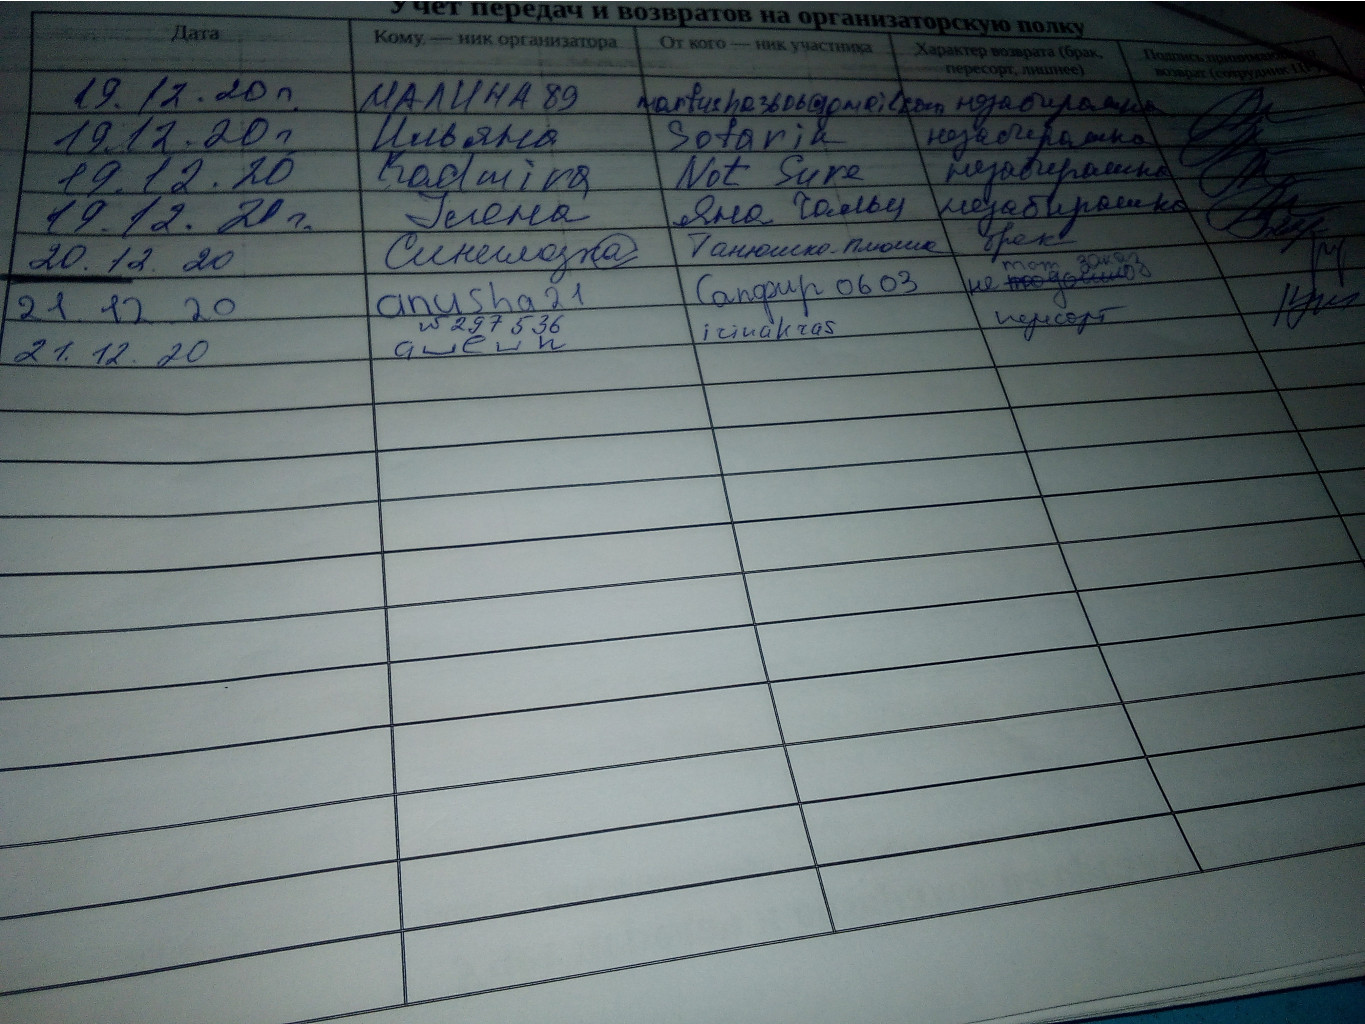 Учет передач и возвратов на организаторскую полку
Дата Кому, — ник организатора От кого — ник участника Характер возврата (брак, пересорт, лишнее) Подпись возврат (сотрудник
19.12.20г МАЛИНА 89 незабирашка
19.12.20г Ильяна Sofarik незабирашка
19.12.20 Radmira Not Sure незабирашка
19.12.20г. Яна незабирашка
20.12.20 Синеглазка брак
21 12 20 anusha21 Сапфир 0603 не тот заказ
21.12.20 №297536 irinakras пересорт